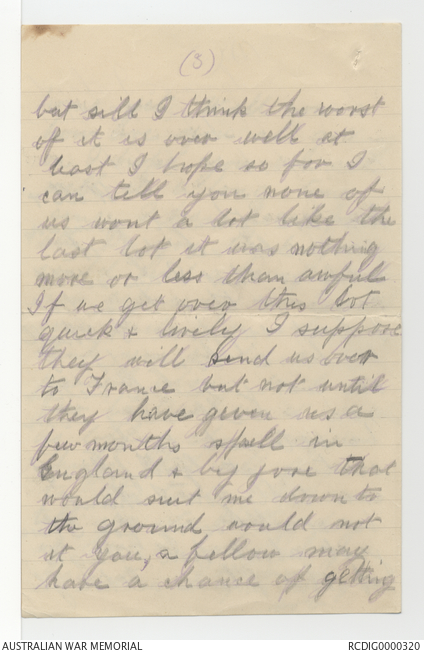 (3)
but sill I think the worst
of it is over well at
least I hope so for I
can tell you none of
us want a lot like the
last lot it was nothing
more or less than awful
If we get over this lot
quick & lively I suppose
they will send us over
to France but not until
they have given us a
few months spell in
England & by jove that
would suit me down to
the ground would not
it you, a fellow may
have a chance of getting
AUSTRALIAN WAR MEMORIAL
RCDIG0000320